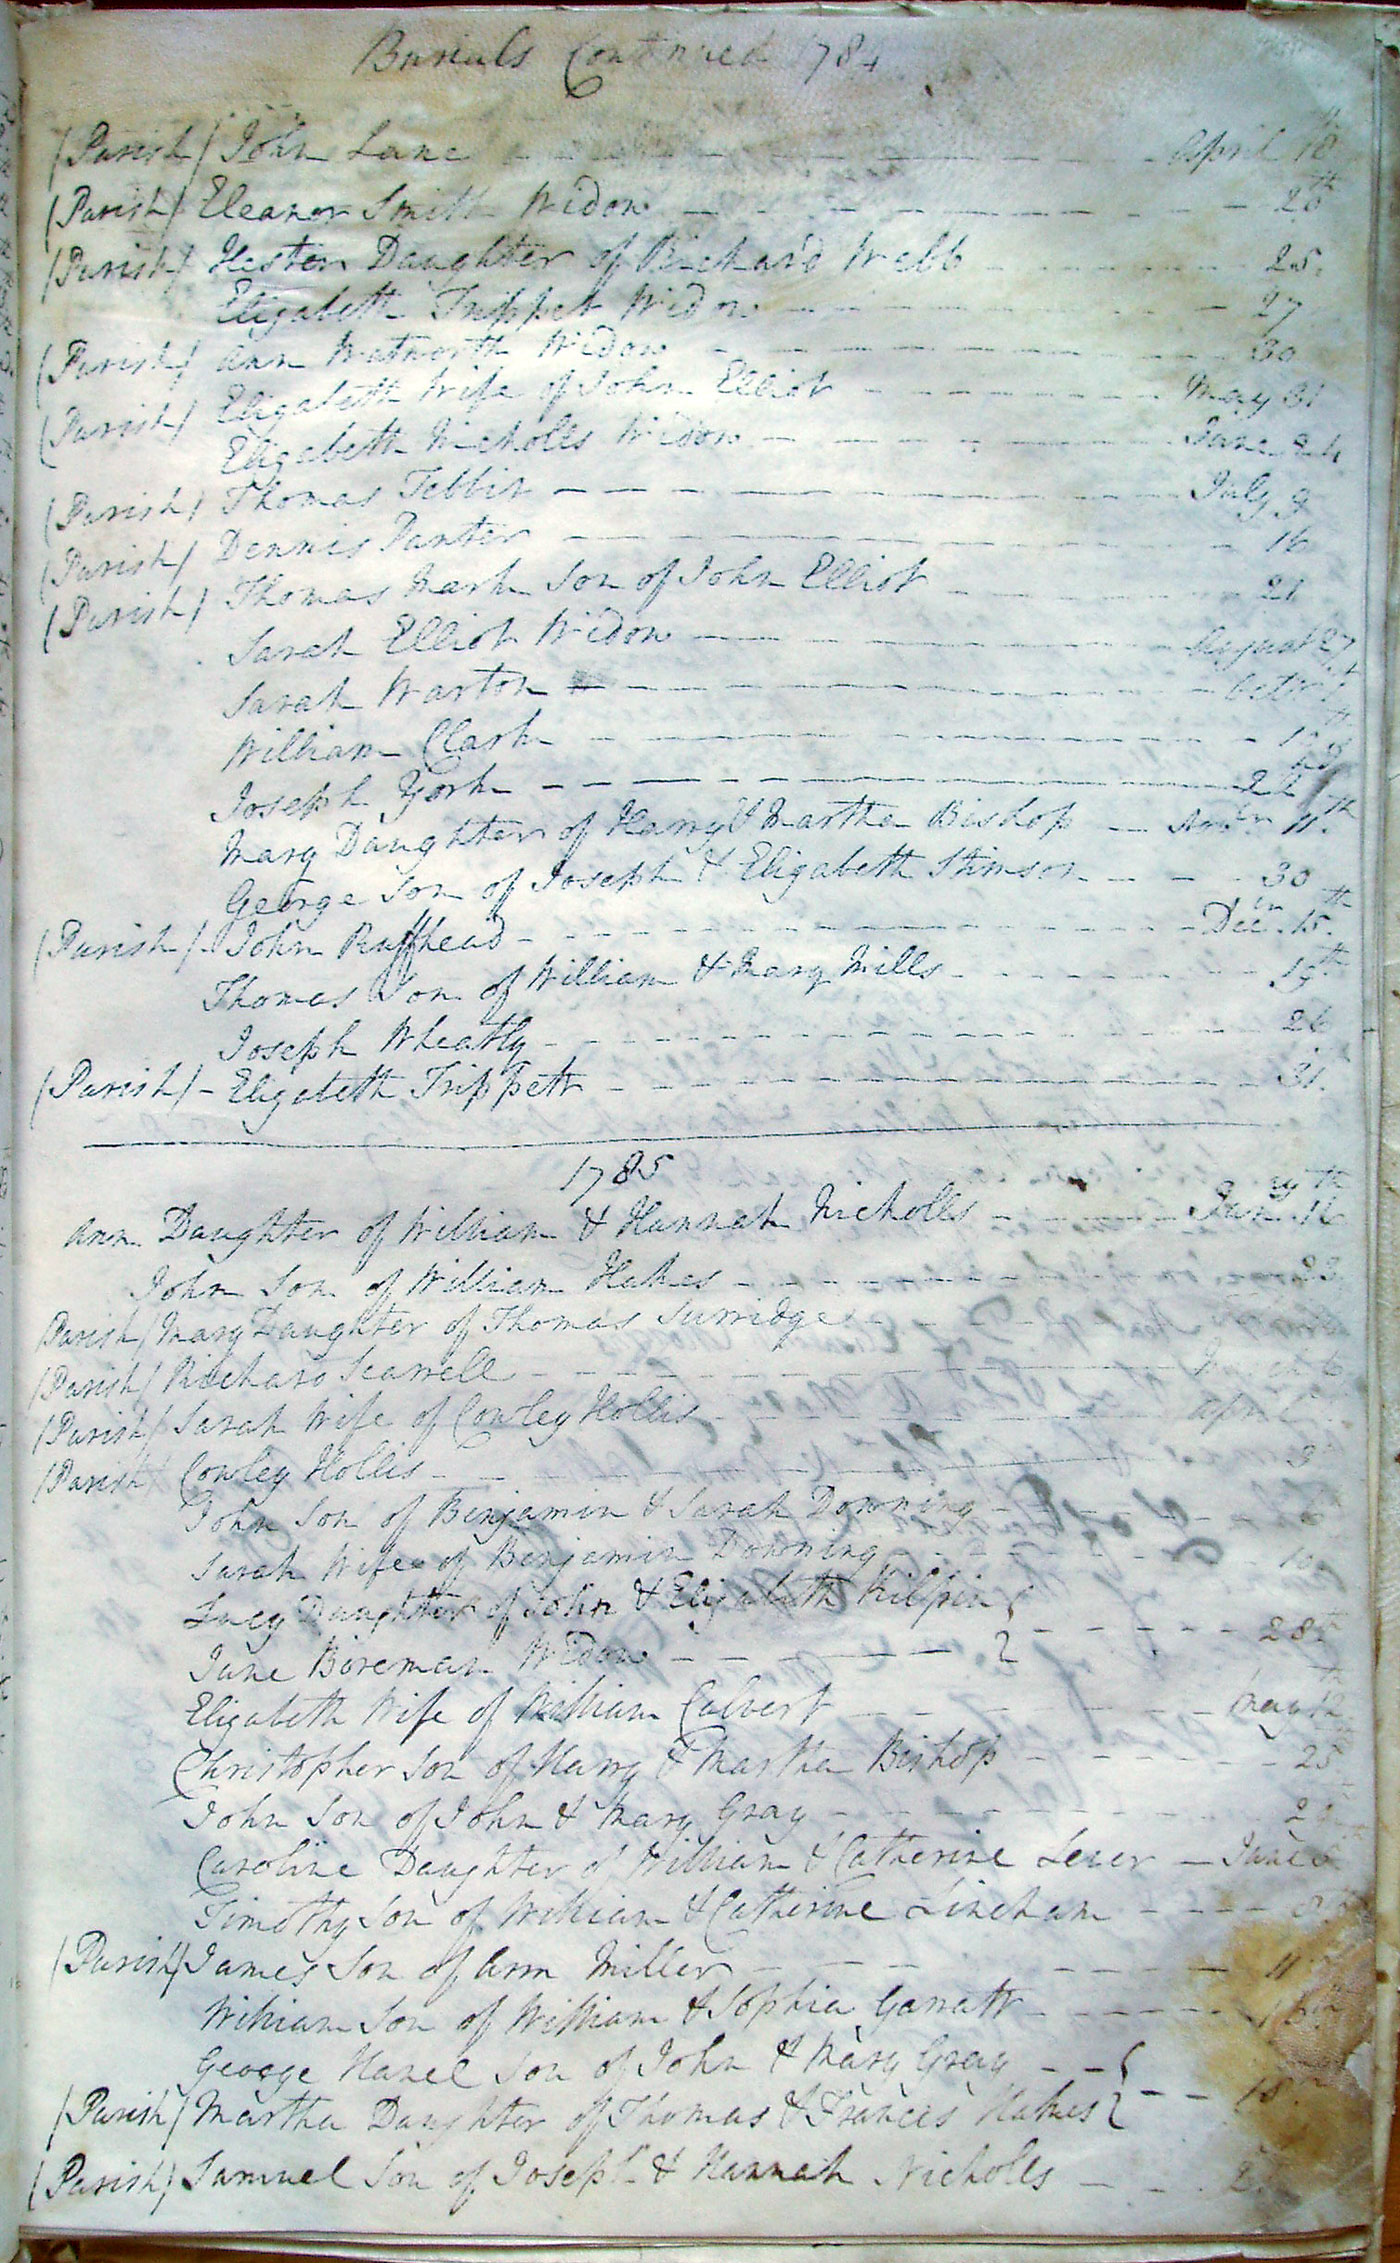 Burials Continued 1784
(Parish) John Lane - - - April 18
(Parish) Eleanor Smith Widow - - - 20th
(Parish) Hester Daughter of Richard Webb - - - 25
Elizabeth Trippet Widow - - - 27
(Parish) Ann Watworth Widow - - - 30
(Parish) Elizabeth Wife of John Elliot - - - May 31
Elizabeth Nicholls Widow - - - June 24
(Parish) Thomas Tebbit - - - July 9
(Parish) Dennis Panter - - - 16
(Parish) Thomas Mark Son of John Elliot - - - 21
Sarah Elliot Widow - - - August 27
Sarah Warton - - - Octbr
William Clark - - -
Joseph York - - - 22
Mary Daughter of Harry & Martha Bishop - - Novbr 11th
George Son of Joseph & Elizabeth Stimson - - - 30
(Parish) - John Ruffhead - - - Decbr 15th
Thomas Son of William & Mary Mills - - - 19th
Joseph Wheatly - - - 26
(Parish) - Elizabeth Trippett - - - 31
1785
Ann Daughter of William & Hannah Nicholls - - - Janry 16th
John Son of William Hakes - - - 23
Parish) Mary Daughter of Thomas Surridge - - -
(Parish) Richard Scarrell - - - March 6
(Parish) Sarah Wife of Cowley Hollis - - - April
(Parish) Cowley Hollis - - - 3
John Son of Benjamin & Sarah Downing - - -
Sarah Wife of Benjamin Downing - - - 10
Lucy Daughter of John & Elizabeth Kilpin
Jane Boreman Widow - - - 28th
Elizabeth Wife of William Calvert - - - May 12th
Christopher Son of Harry & Martha Bishop - - - 25
John Son of John & Mary Gray - - -
Caroline Daughter of William & Catherine Lever - June
Timothy Son of William & Catherine Lineham - - - 8
(Parish) James Son of Ann Miller - - - 11
William Son of William & Sophia Garratt - - -
George Hanel Son of John & Mary Gray - -
(Parish) Martha Daughter of Thomas & Frances Hakes - - - 18
(Parish) Samuel Son of Joseph & Hannah Nicholls - - -